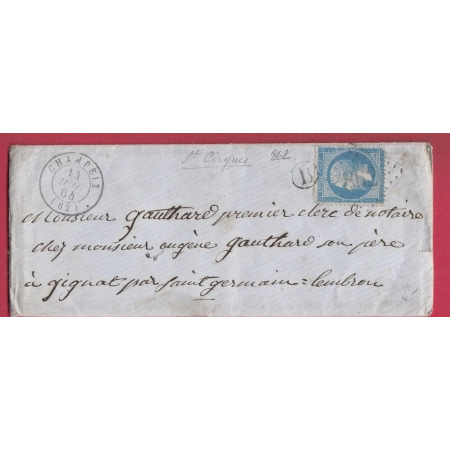 St Cirgues 862
CHAMPEIX
14
64
(62)
B
Monsieur gauthard premier clerc de notaire
chez monsieur eugène gauthard son père
à gignat par saint germain = lembron